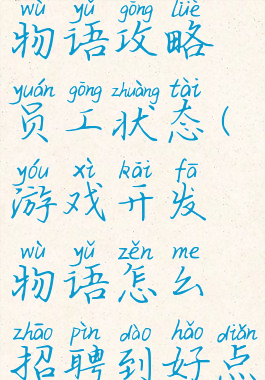 wù yǔ gōng lüè
物语攻略
yuán gōng zhuàng tài
员工状态(
yóu xì kāi fā
游戏开发
wù yǔ zěn me
物语怎么
zhāo pìn dào hǎo diǎn
招聘到好点